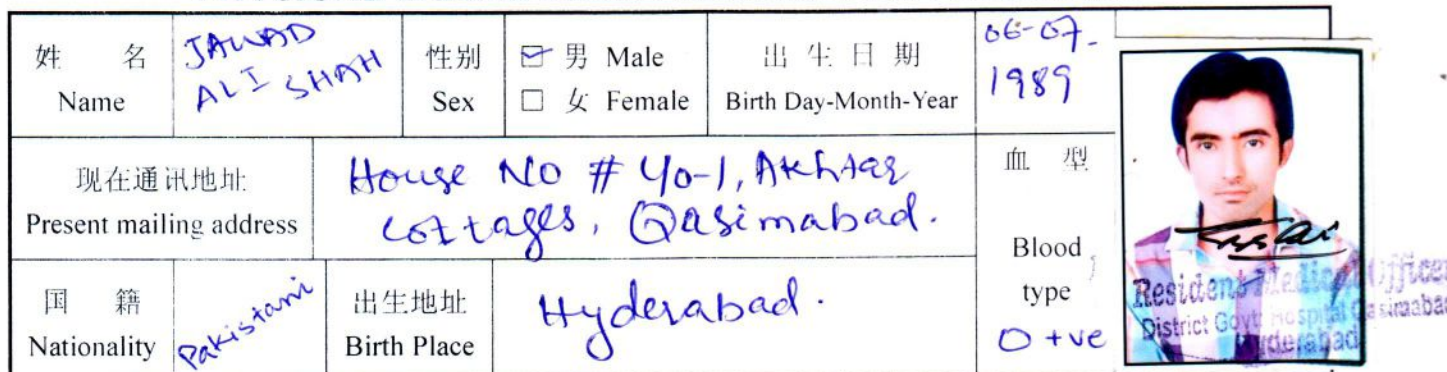 姓 名
Name
JAWAD
ALI SHAH
性别
Sex
男 Male
女 Female
出 生 日 期
Birth Day-Month-Year
06-07-
1989
现在通讯地址
Present mailing address
House No # 40-1, Akhtar
cottages, Qasimabad.
血 型
Blood
type
O +ve
国 籍
Nationality
Pakistani
出生地址
Birth Place
Hyderabad.
Resident Medical Officer
District Govt: Hospital Qasimabad
Hyderabad